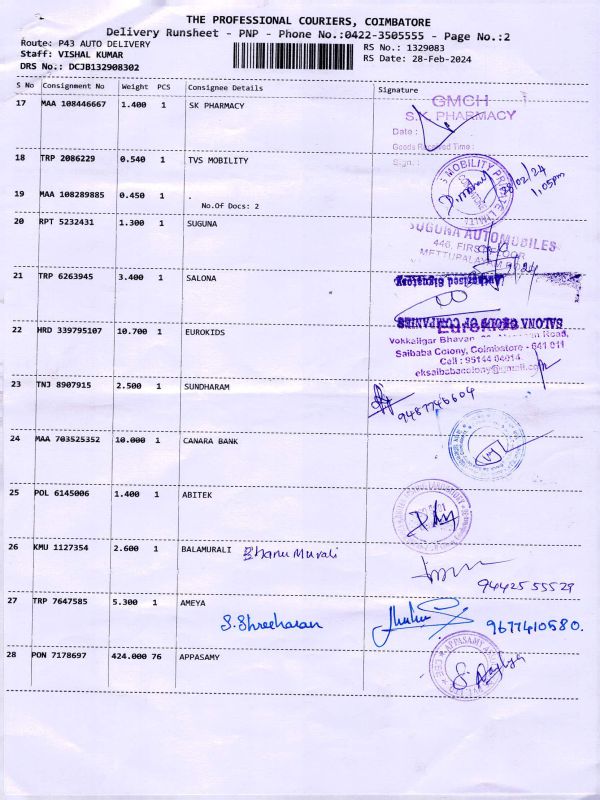 THE PROFESSIONAL COURIERS, COIMBATORE
Delivery Runsheet - PNP - Phone No.:0422-3505555 - Page No.:2
Route: P43 AUTO DELIVERY
Staff: VISHAL KUMAR
DRS No.: DCJB132908302
RS No.: 1329083
RS Date: 28-Feb-2024
S No Consignment No Weight PCS Consignee Details Signature
17 MAA 108446667 1.400 1 SK PHARMACY
GMCH
S.K PHARMACY
Date :
Goods Received Time :
Sign. :
18 TRP 2086229 0.540 1 TVS MOBILITY
MOBILITY PRIVATE
28/02/24
1.05pm
19 MAA 108289885 0.450 1 .
No.Of Docs: 2
20 RPT 5232431 1.300 1 SUGUNA
SUGUNA AUTOMOBILES
446, FIRST FLOOR
21 TRP 6263945 3.400 1 SALONA
Authorised Signatory
SALONA GROUP OF COMPANIES
22 HRD 339795107 10.700 1 EUROKIDS
Vokkaligar Bhavan
Saibaba Colony, Coimbatore - 641 011
Cell : 95144 04014
eksaibabacolony@gmail.com
23 TNJ 8907915 2.500 1 SUNDHARAM
9487746604
24 MAA 703525352 10.000 1 CANARA BANK
25 POL 6145006 1.400 1 ABITEK
26 KMU 1127354 2.600 1 BALAMURALI Bhanu Murali
94425 55529
27 TRP 7647585 5.300 1 AMEYA
S. Shreeharan
9677410580.
28 PON 7178697 424.000 76 APPASAMY
APPASAMY